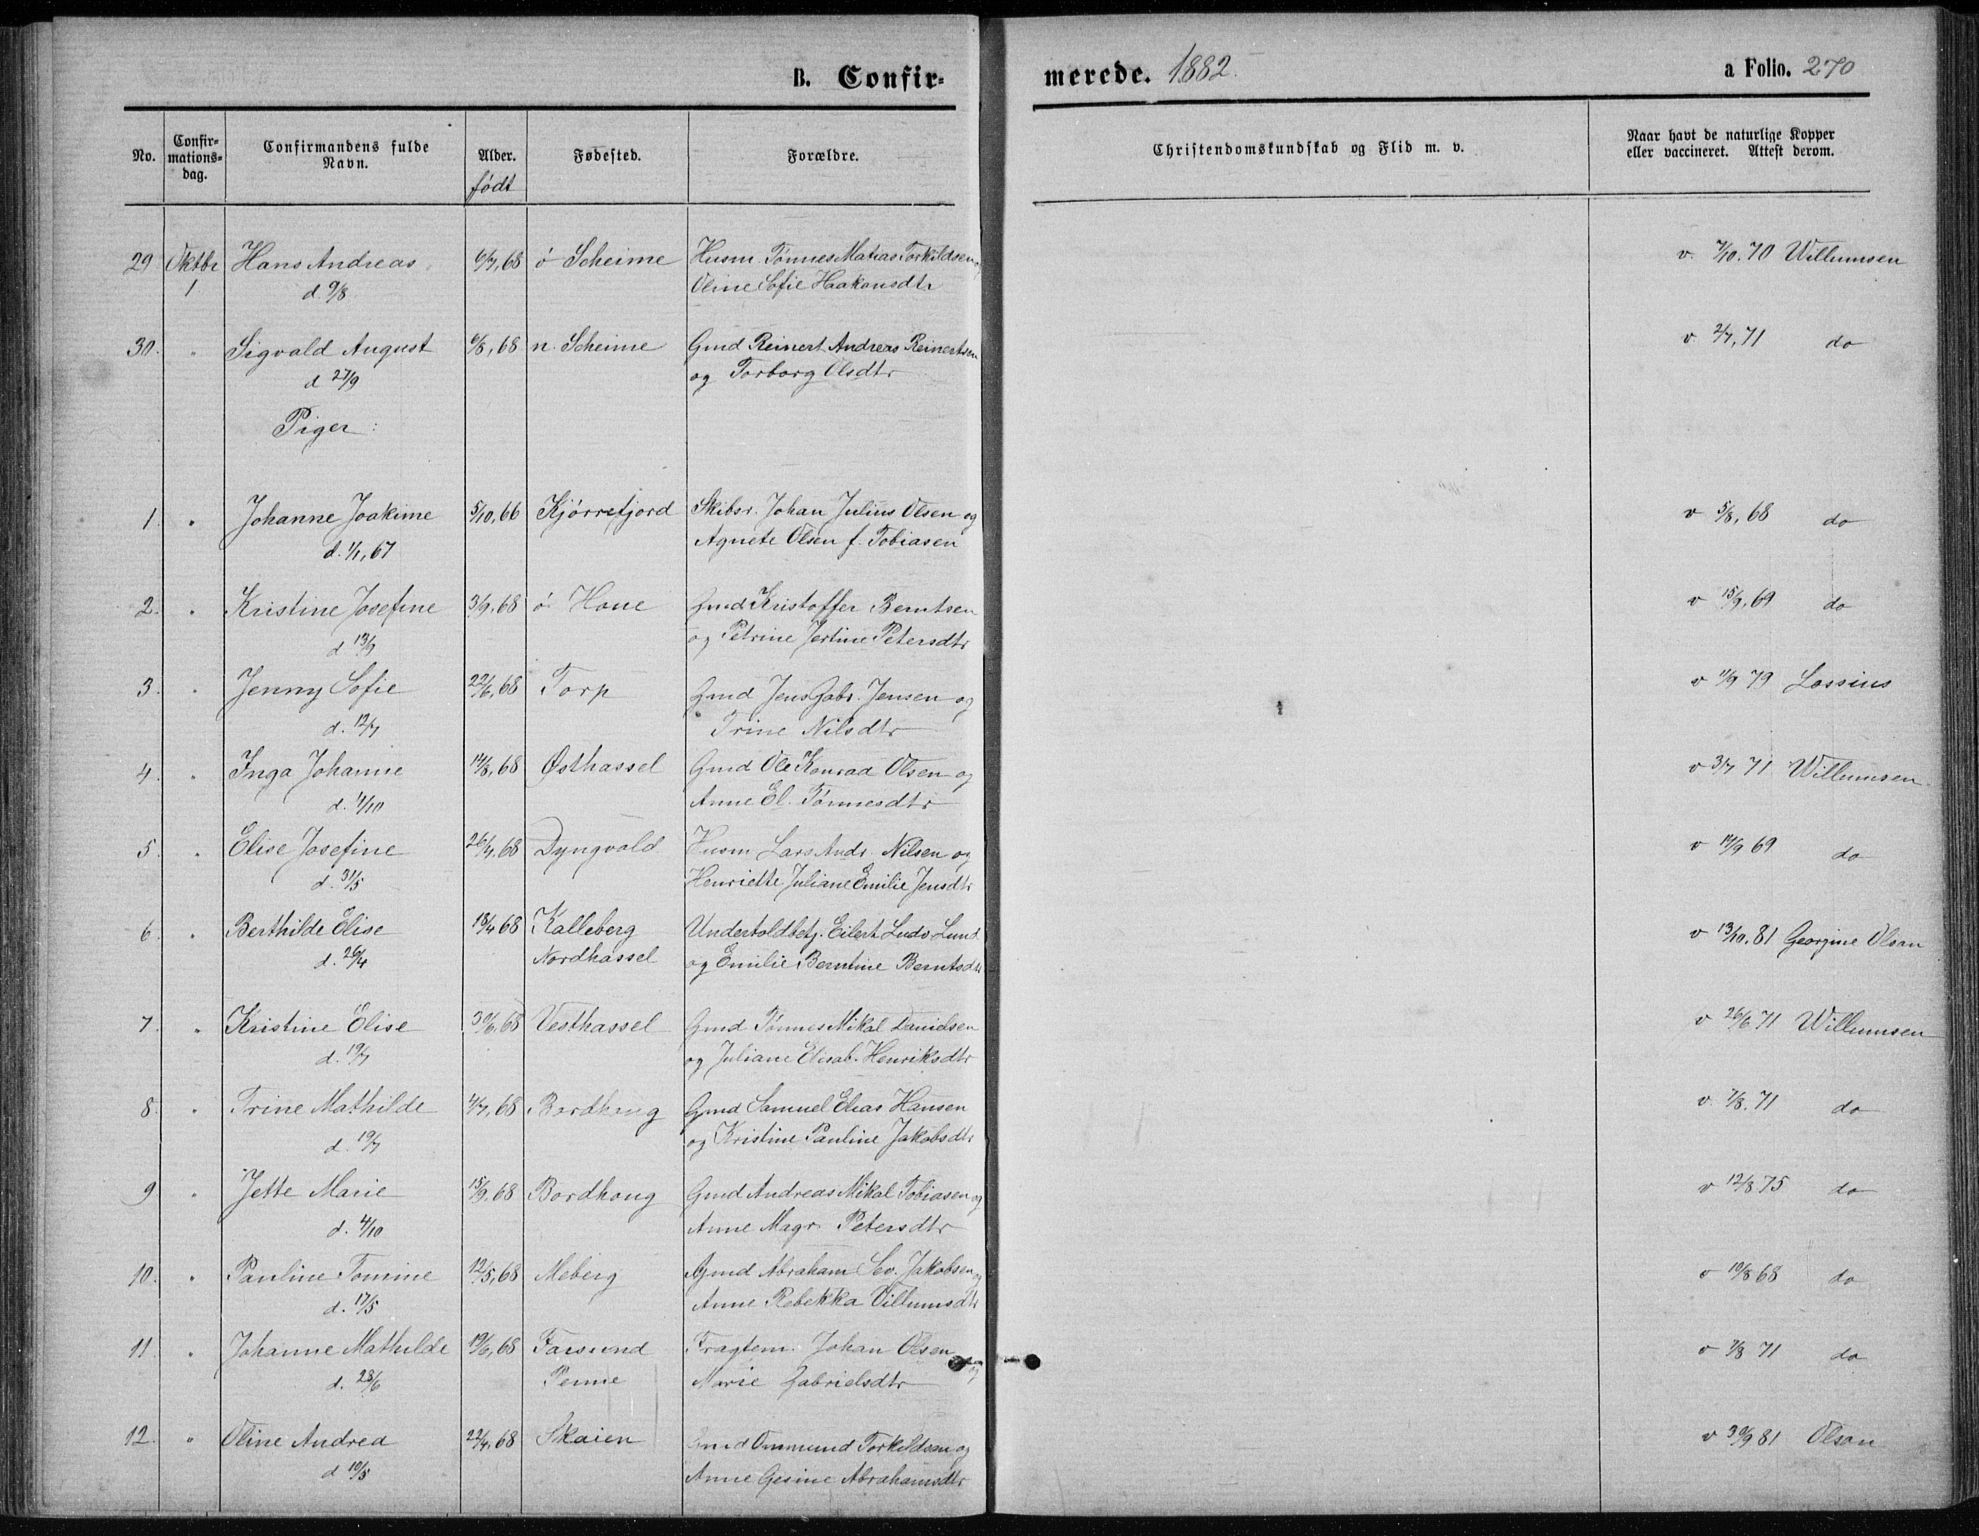 B. Confir-
merede. 1882.
a Folio. 270
No.
Confir-
mations-
dag.
Confirmandens fulde
Navn.
Alder.
født
Fødested.
Forældre.
Christendomskundskab og Flid m. v.
Naar havt de naturlige Kopper
eller vaccineret. Attest derom.
29 Oktbr Hans Andreas 6/7, 68 ø Scheime Husm. Tønnes Matias Torkildsen v. 7/10. 70 Willumsen
1 d. 9/8 Oline Sofie Haakonsdtr
30. " Sigvald August 6/8, 68 n. Scheime Gmd Reinert Andreas Reinertsen v 2/7, 71 do
d 27/9 og Torborg Olsdtr
Piger:
1. " Johanne Joakime 5/10, 66 Kjørrefjord Skibsr. Johan Julius Olsen og v 5/8, 68 do
d. 1/1, 67 Agnete Olsen f. Tobiasen
2. " Kristine Josefine 3/9, 68 ø Hone Gmd Kristoffer Berntsen v 15/9, 69 do
d 13/9 og Petrine Jertine Petersdtr
3. " Jenny Sofie 22/6, 68 Torp Gmd Jens Gabr. Jensen og v 11/9 79 Lossius
d. 12/7 Trine Nilsdtr
4. " Inga Johanne 14/8, 68 Østhassel Gmd Ole Konrad Olsen og v 3/7 71 Willumsen
d. 4/10 Anne El. Tønnesdtr
5. " Elise Josefine 26/4, 68 Dyngvold Husm Lars Andr. Nilsen og v 14/9 69 do
d. 31/5 Henriette Juliane Emilie Jensdtr
6. " Berthilde Elise 18/4 68 Kalleberg Undertoldbetj. Eilert Ludv Lund v 13/10. 81 Georgine Olsen
d. 26/4 Nordhassel og Emilie Berntine Berntsdtr
7. " Kristine Elise 30/6, 68 Vesthassel Gmd Tønnes Mikal Danielsen v 26/6 71 Willumsen
d. 19/7 og Juliane Elisab. Henriksdtr
8. " Trine Mathilde 4/7, 68 Bordhaug Gmd Samuel Elias Hansen v. 7/8. 71 do
d. 19/7 og Kristine Pauline Jakobsdtr
9 " Jette Marie 15/9, 68 Bordhaug Gmd Andreas Mikal Tobiasen og v 12/8 75 do
d. 4/10 Anne Magr. Petersdtr
10. " Pauline Tomine 12/5, 68 Meberg Gmd Abraham Sev. Jakobsen og v 10/8 68 do
d. 17/5 Anne Rebekka Villumsdtr
11 " Johanne Mathilde 19/6, 68 Farsund Fragtem. Johan Olsen og v 7/8 71 do
d. 28/6 Penne Marie Gabrielsdtr
12. " Oline Andrea 22/4, 68 Skaien Gmd Ommund Torkildsen og v 30/9 81 Olsen
d 10/5 Anne Gesine Abrahamsdtr